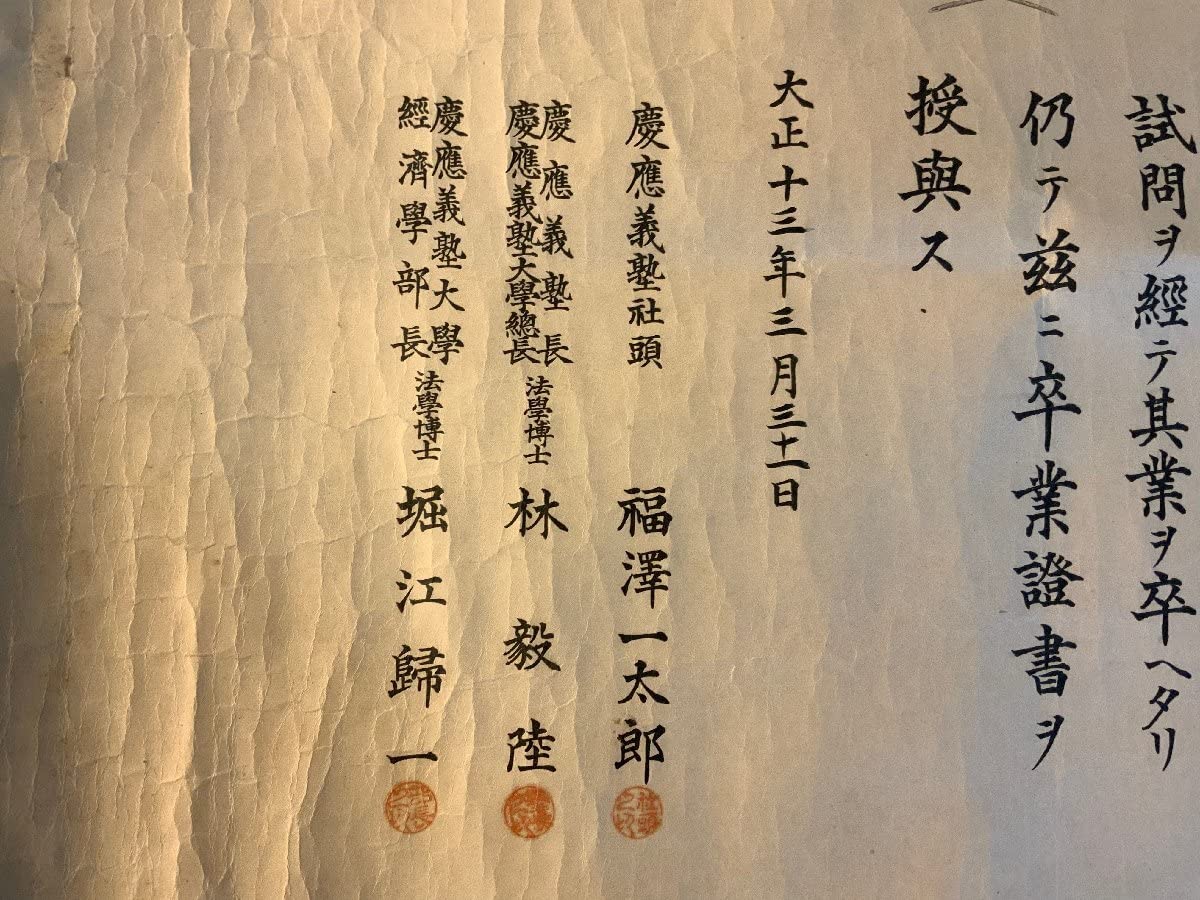 試問ヲ經テ其業ヲ卒ヘタリ
仍テ茲ニ卒業證書ヲ
授與ス
大正十三年三月三十一日
慶應義塾社頭 福澤一太郎
慶應義塾長
慶應義塾大學總長 法學博士 林毅陸
慶應義塾大學
經濟學部長 法學博士 堀江歸一